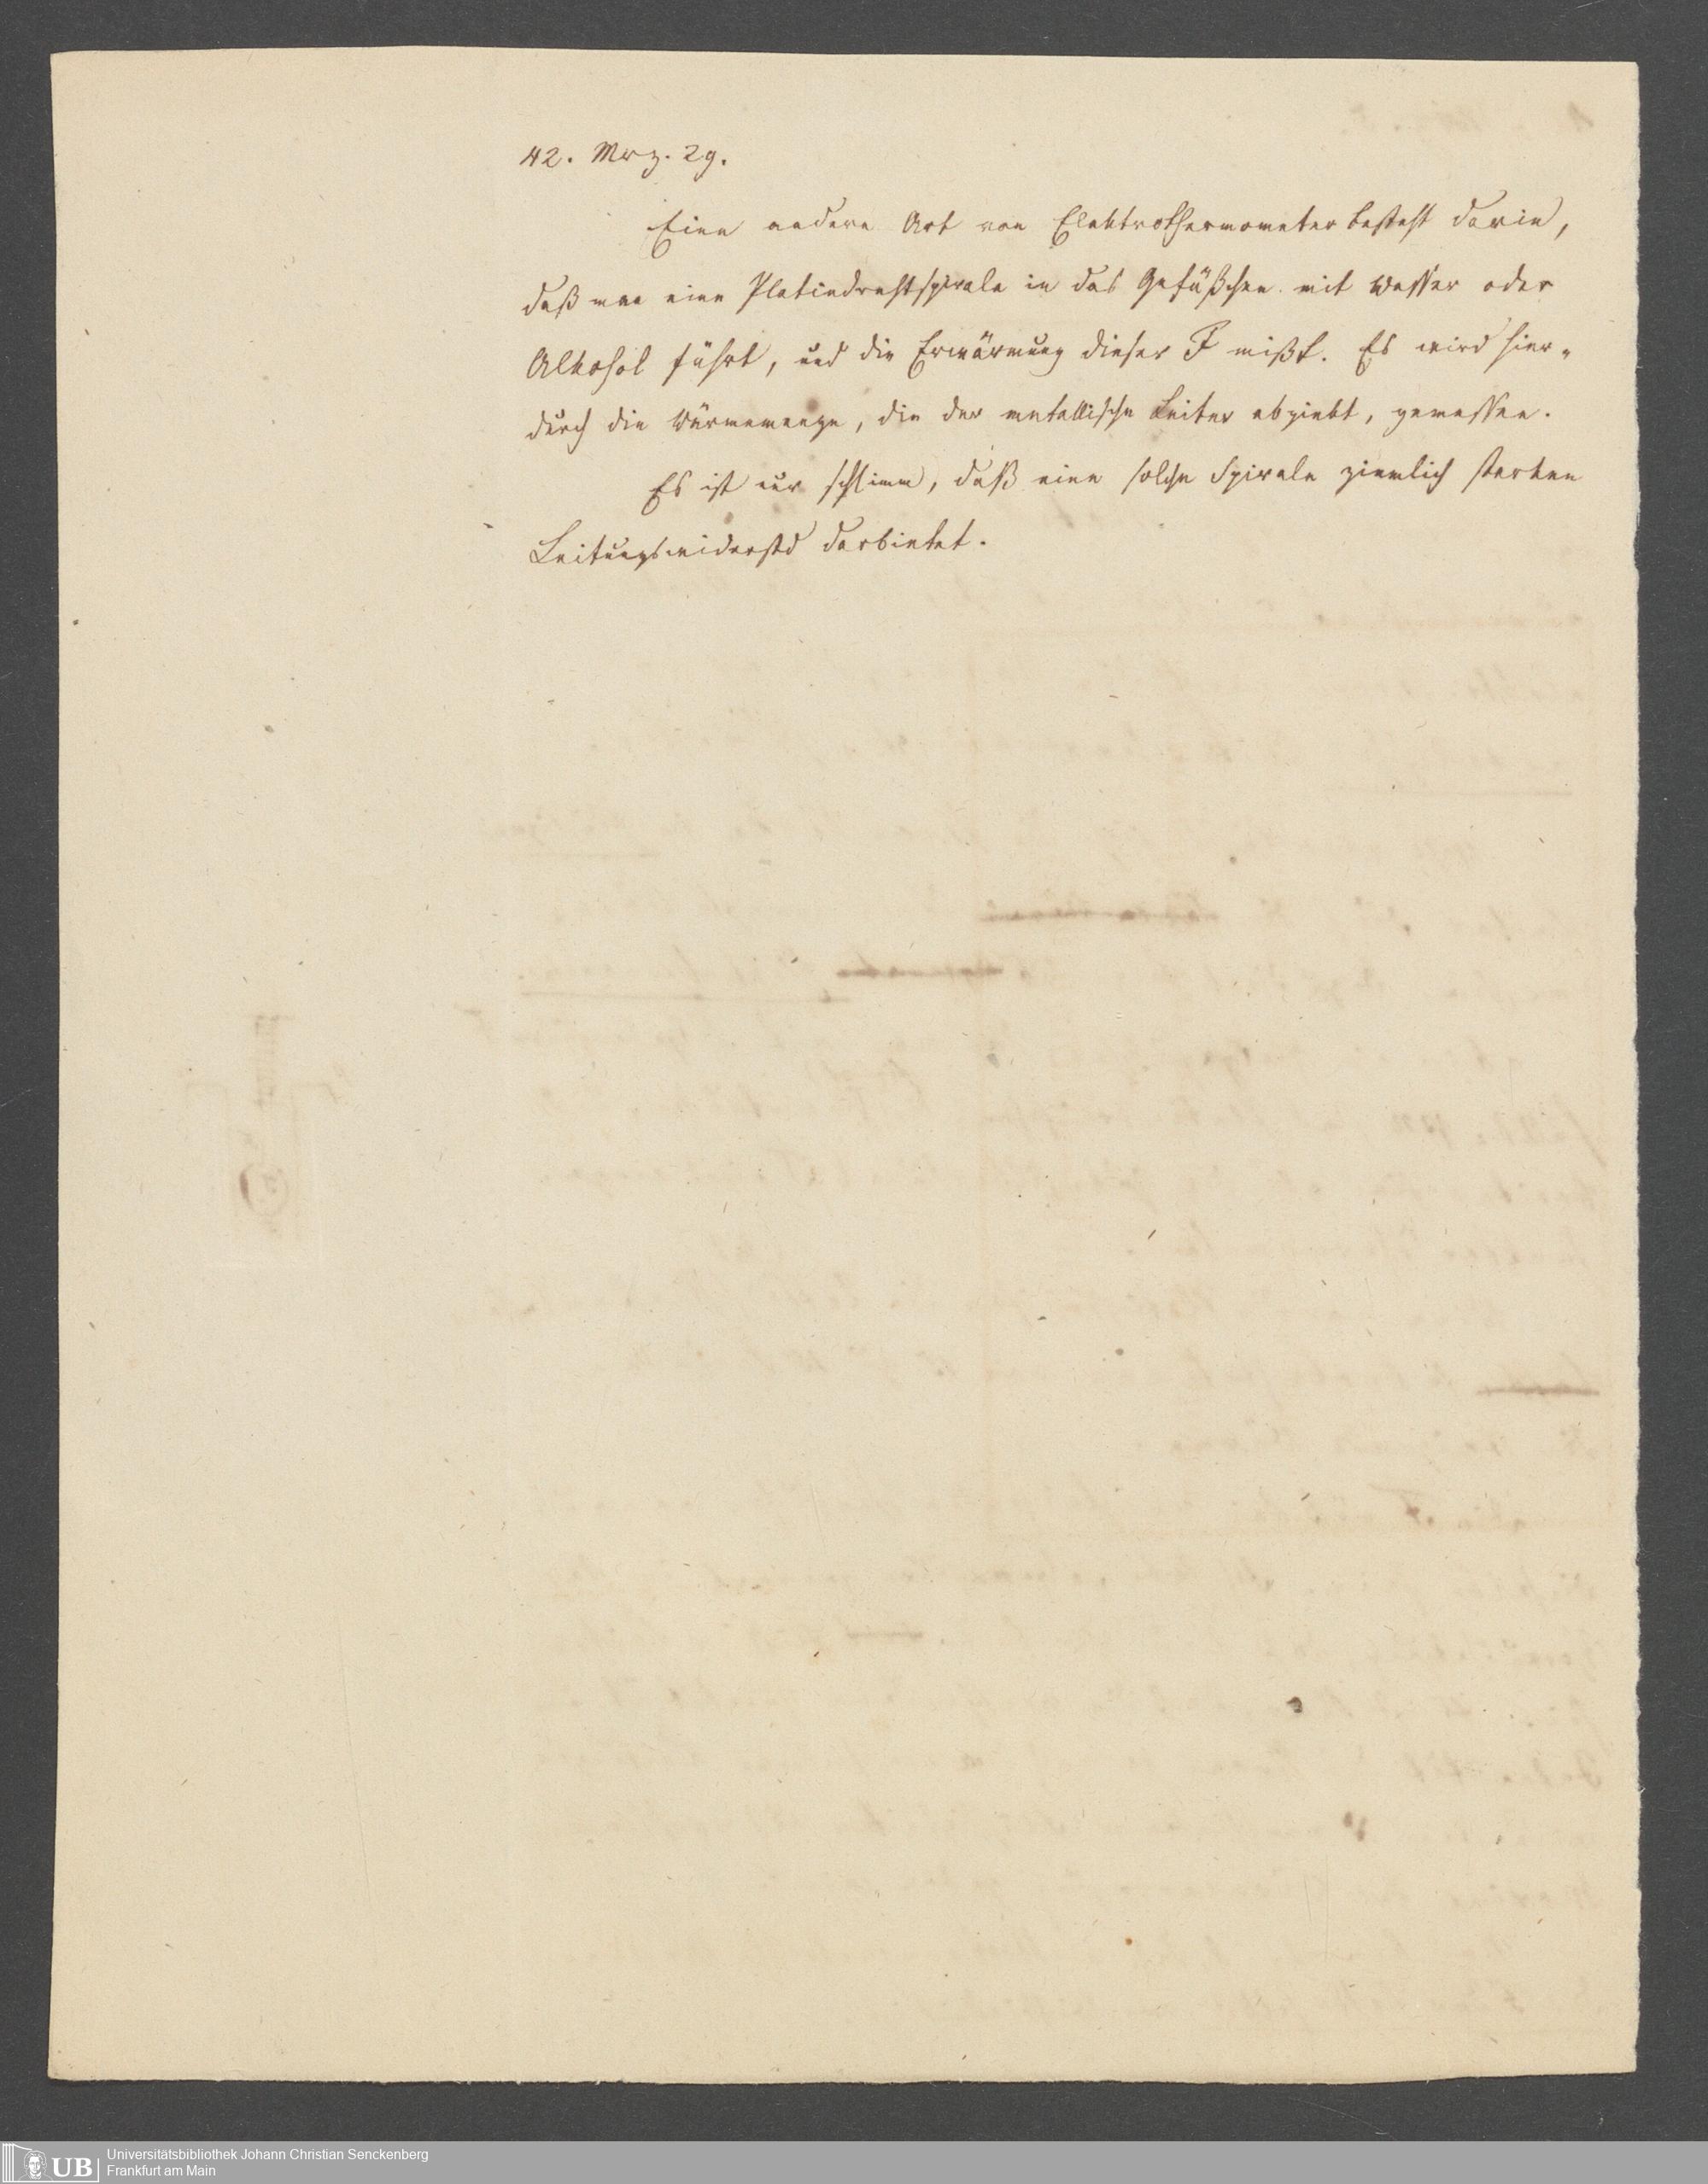 42. Mrz. 29.
Eine andere Art von Elektrothermometer besteht darin,
daß man eine Platindrahtspirale in das Gefäßchen mit Wasser oder
Alkohol führt, und die Erwärmung dieser F mißt. Es wird hier-
durch die Wärmemenge, die der metallische Leiter abgiebt, gemessen.
Es ist nur schlimm, daß eine solche Spirale ziemlich starken
Leitungswiderstd darbietet.
UB
Universitätsbibliothek Johann Christian Senckenberg
Frankfurt am Main